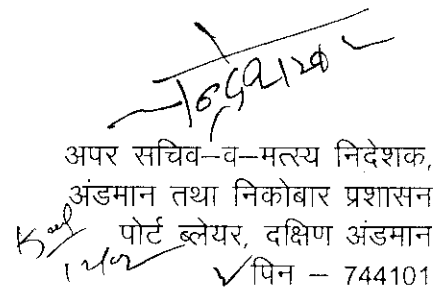 अपर सचिव–व–मत्स्य निदेशक,
अंडमान तथा निकोबार प्रशासन
पोर्ट ब्लेयर, दक्षिण अंडमान
पिन – 744101